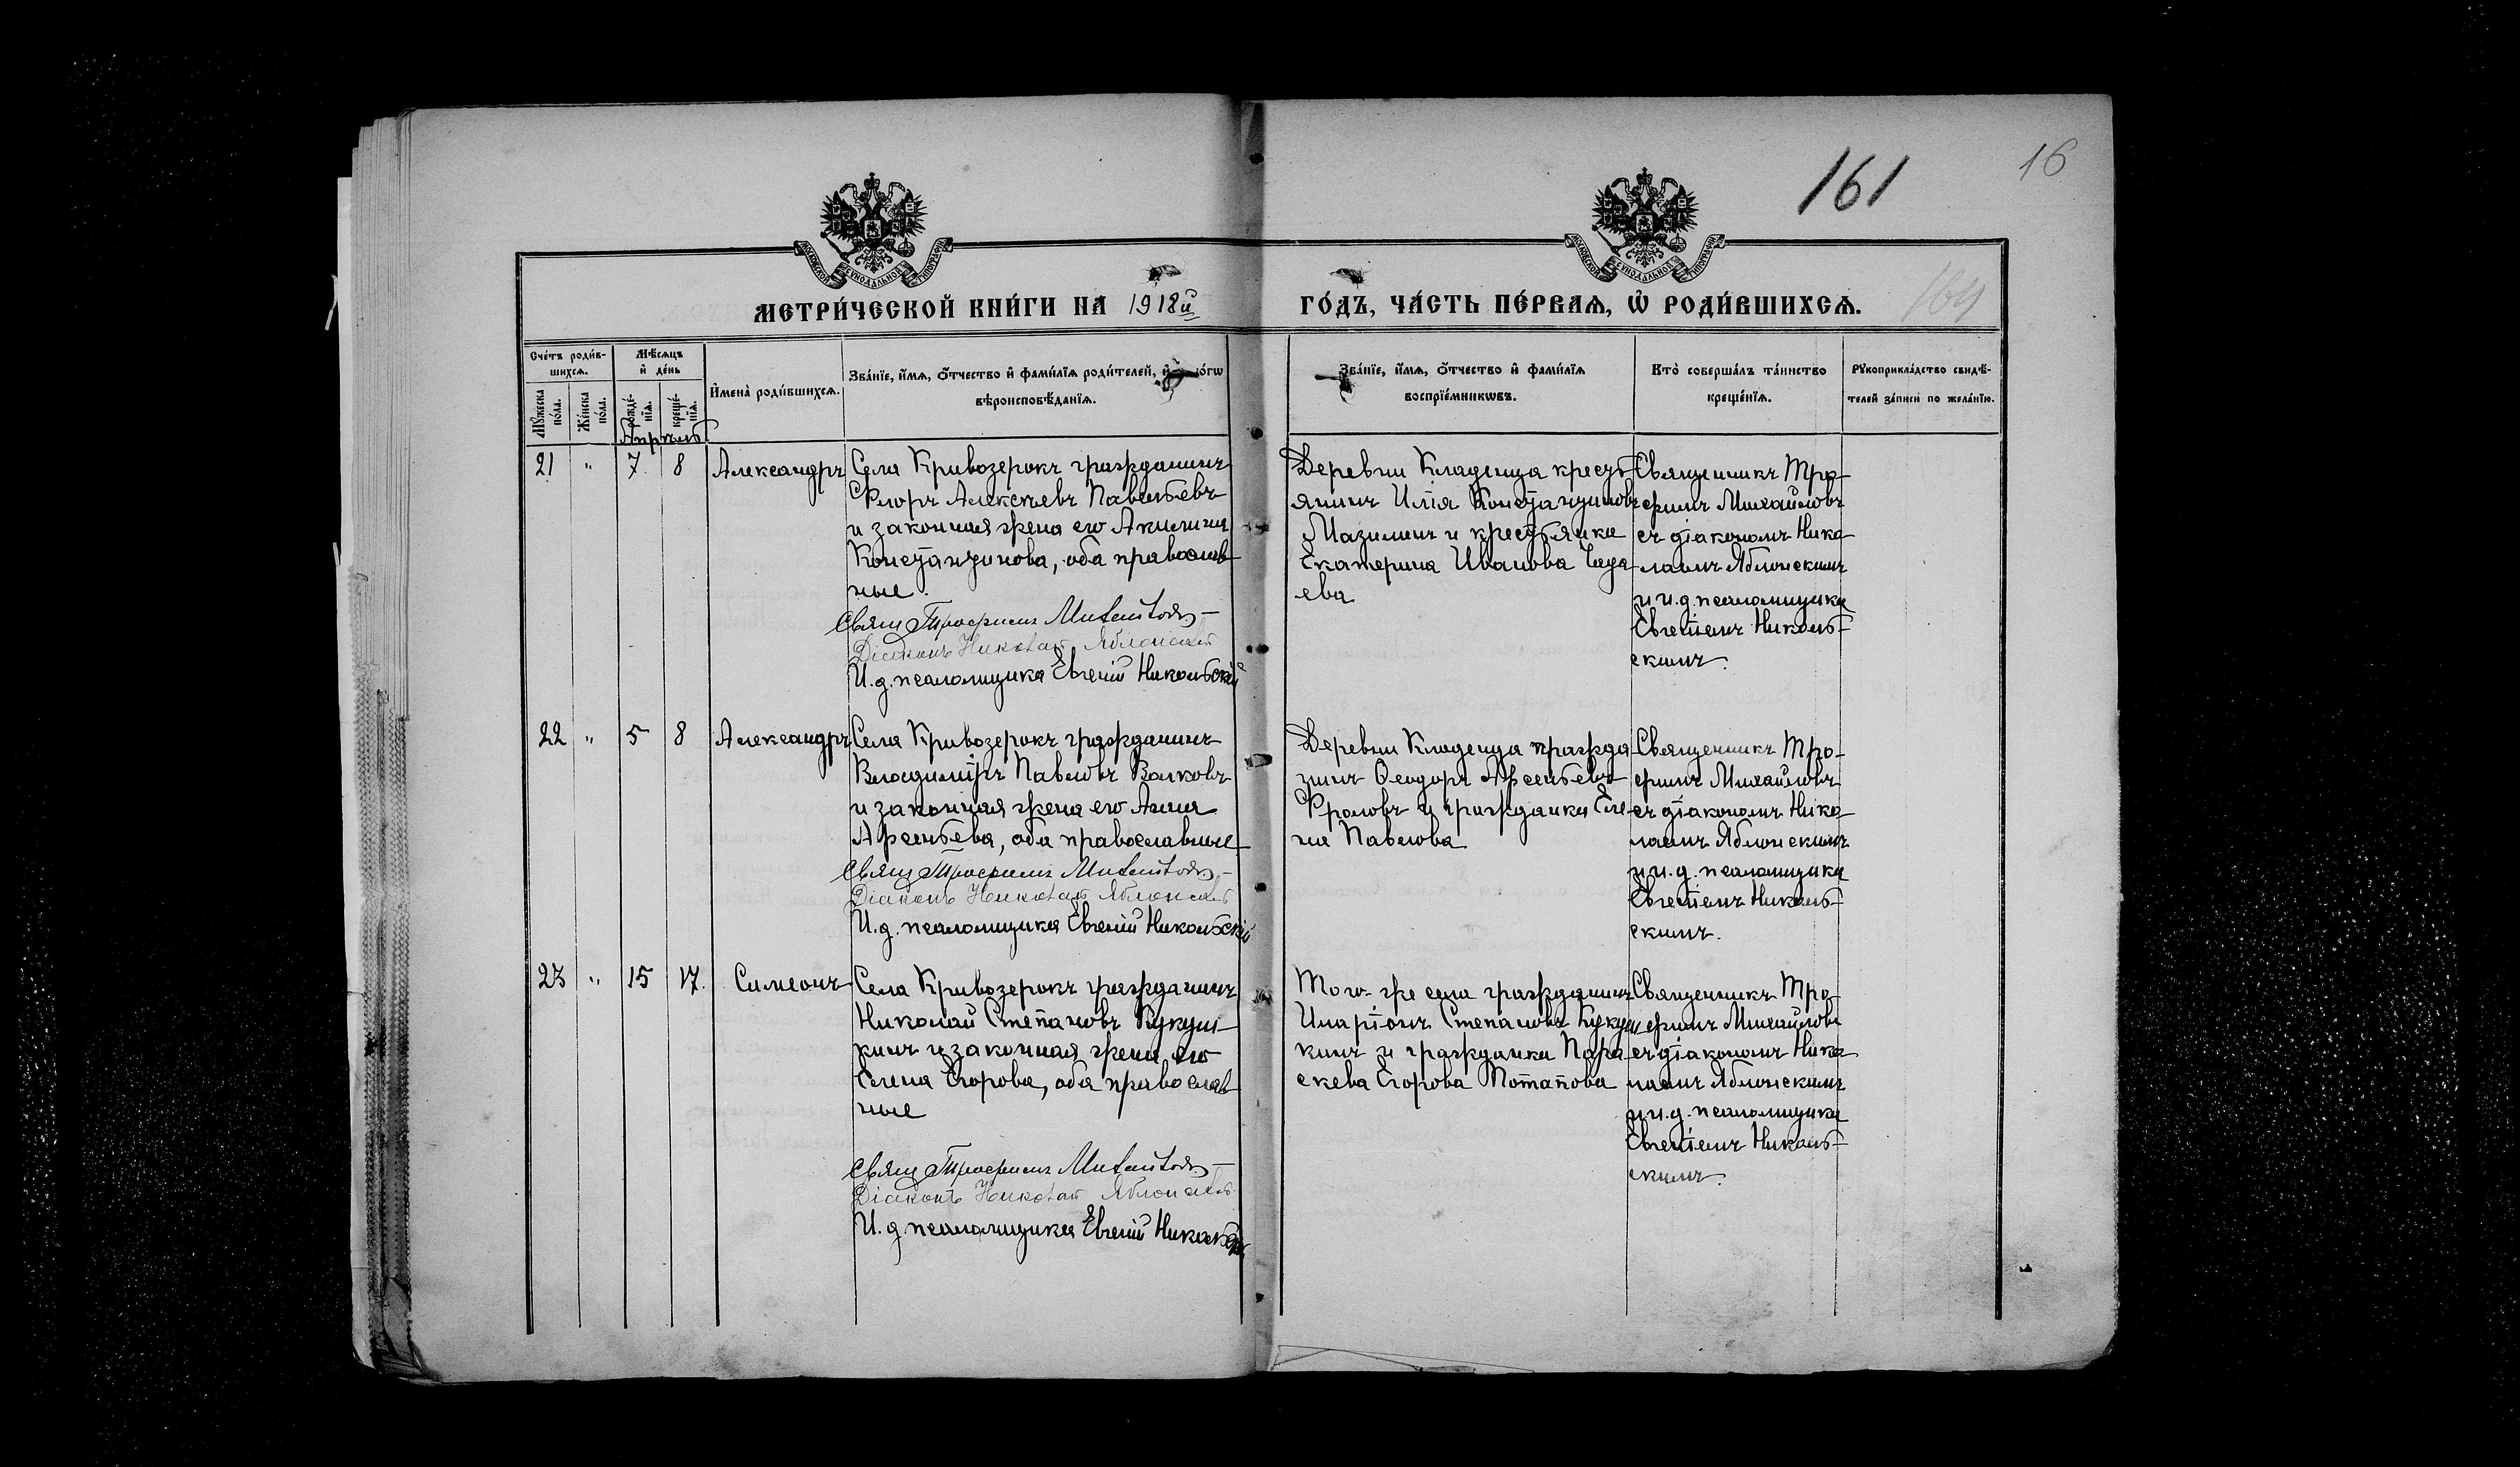 161
16
МОСКОВСКОЙ СѴНОДАЛЬНОЙ ТИПОГРАФІИ
МОСКОВСКОЙ СѴНОДАЛЬНОЙ ТИПОГРАФІИ
МЕТРИ́ЧЕСКОЙ КНИ́ГИ НА 1918й ГО́ДЪ, ЧА́СТЬ ПЕ́РВАѦ, Ѡ҆ РОДИ́ВШИХСѦ.
164
Сче́тъ роди́в-
шихсѧ.
Мѣ́сѧцъ
и҆ де́нь
И҆мена̀ роди́вшихсѧ.
Зва́нїе, и҆́мѧ, ѻ҆́тчество и҆ фами́лїѧ роди́телей, и҆
вѣроисповѣ́данїѧ.
Зва́нїе, и҆́мѧ, ѻ҆́тчество и҆ фами́лїѧ
воспрїе́мникѡвъ.
Кто̀ соверша́лъ та́инство
креще́нїѧ.
Рꙋкоприкла́дство свидѣ́-
телей за́писи по жела́нїю.
Мꙋ́жеска
по́ла.
Же́нска
по́ла.
рожде́-
нїѧ.
креще́-
нїѧ.
Апрѣль
21 " 7. 8 Александръ
Села Кривозерокъ гражданинъ
Флоръ Алексѣевъ Павельевъ
и законная жена его Акилина
Константинова, оба православ-
ные.
Свящ Трофимъ Михайловъ
Діаконъ Николай Яблонскій
И. д. псаломщика Евгеній Никольскій
Деревни Кладенца кресть-
янинъ Илія Константиновъ
Мазилинъ и крестьянка
Екатерина Иванова
ева
Священникъ Тро-
фимъ Михайловъ
съ діакономъ Нико-
лаемъ Яблонскимъ
и и. д. псаломщика
Евгеніемъ Николь-
скимъ.
22 " 5 8 Александръ
Села Кривозерокъ гражданинъ
Владиміръ Павловъ Волковъ
и законная жена его Анна
Арсеньева, оба православные
Свящ Трофимъ Михайловъ
Діаконъ Николай Яблонскій
И. д. псаломщика Евгеній Никольскій
Деревни Кладенца гражда-
нинъ Ѳеодоръ Арсеньевъ
Фроловъ и гражданка Еле-
на Павлова
Священникъ Тро-
фимъ Михайловъ
съ діакономъ Нико-
лаемъ Яблонскимъ
и и. д. псаломщика
Евгеніемъ Николь-
скимъ.
23 " 15 17. Симеонъ
Села Кривозерокъ гражданинъ
Николай Степановъ Кукуш-
кинъ и законная жена его
Елена Егорова, оба православ-
ные
Свящ Трофимъ Михайловъ
Діаконъ Николай Яблонскій
И. д. псаломщика Евгеній Никольскій
Того-же села гражданинъ
Иларіонъ Степановъ Кукуш-
кинъ и гражданка Пара-
скева Егорова Потапова
Священникъ Тро-
фимъ Михайловъ
съ діакономъ Нико-
лаемъ Яблонскимъ
и и. д. псаломщика
Евгеніемъ Николь-
скимъ.